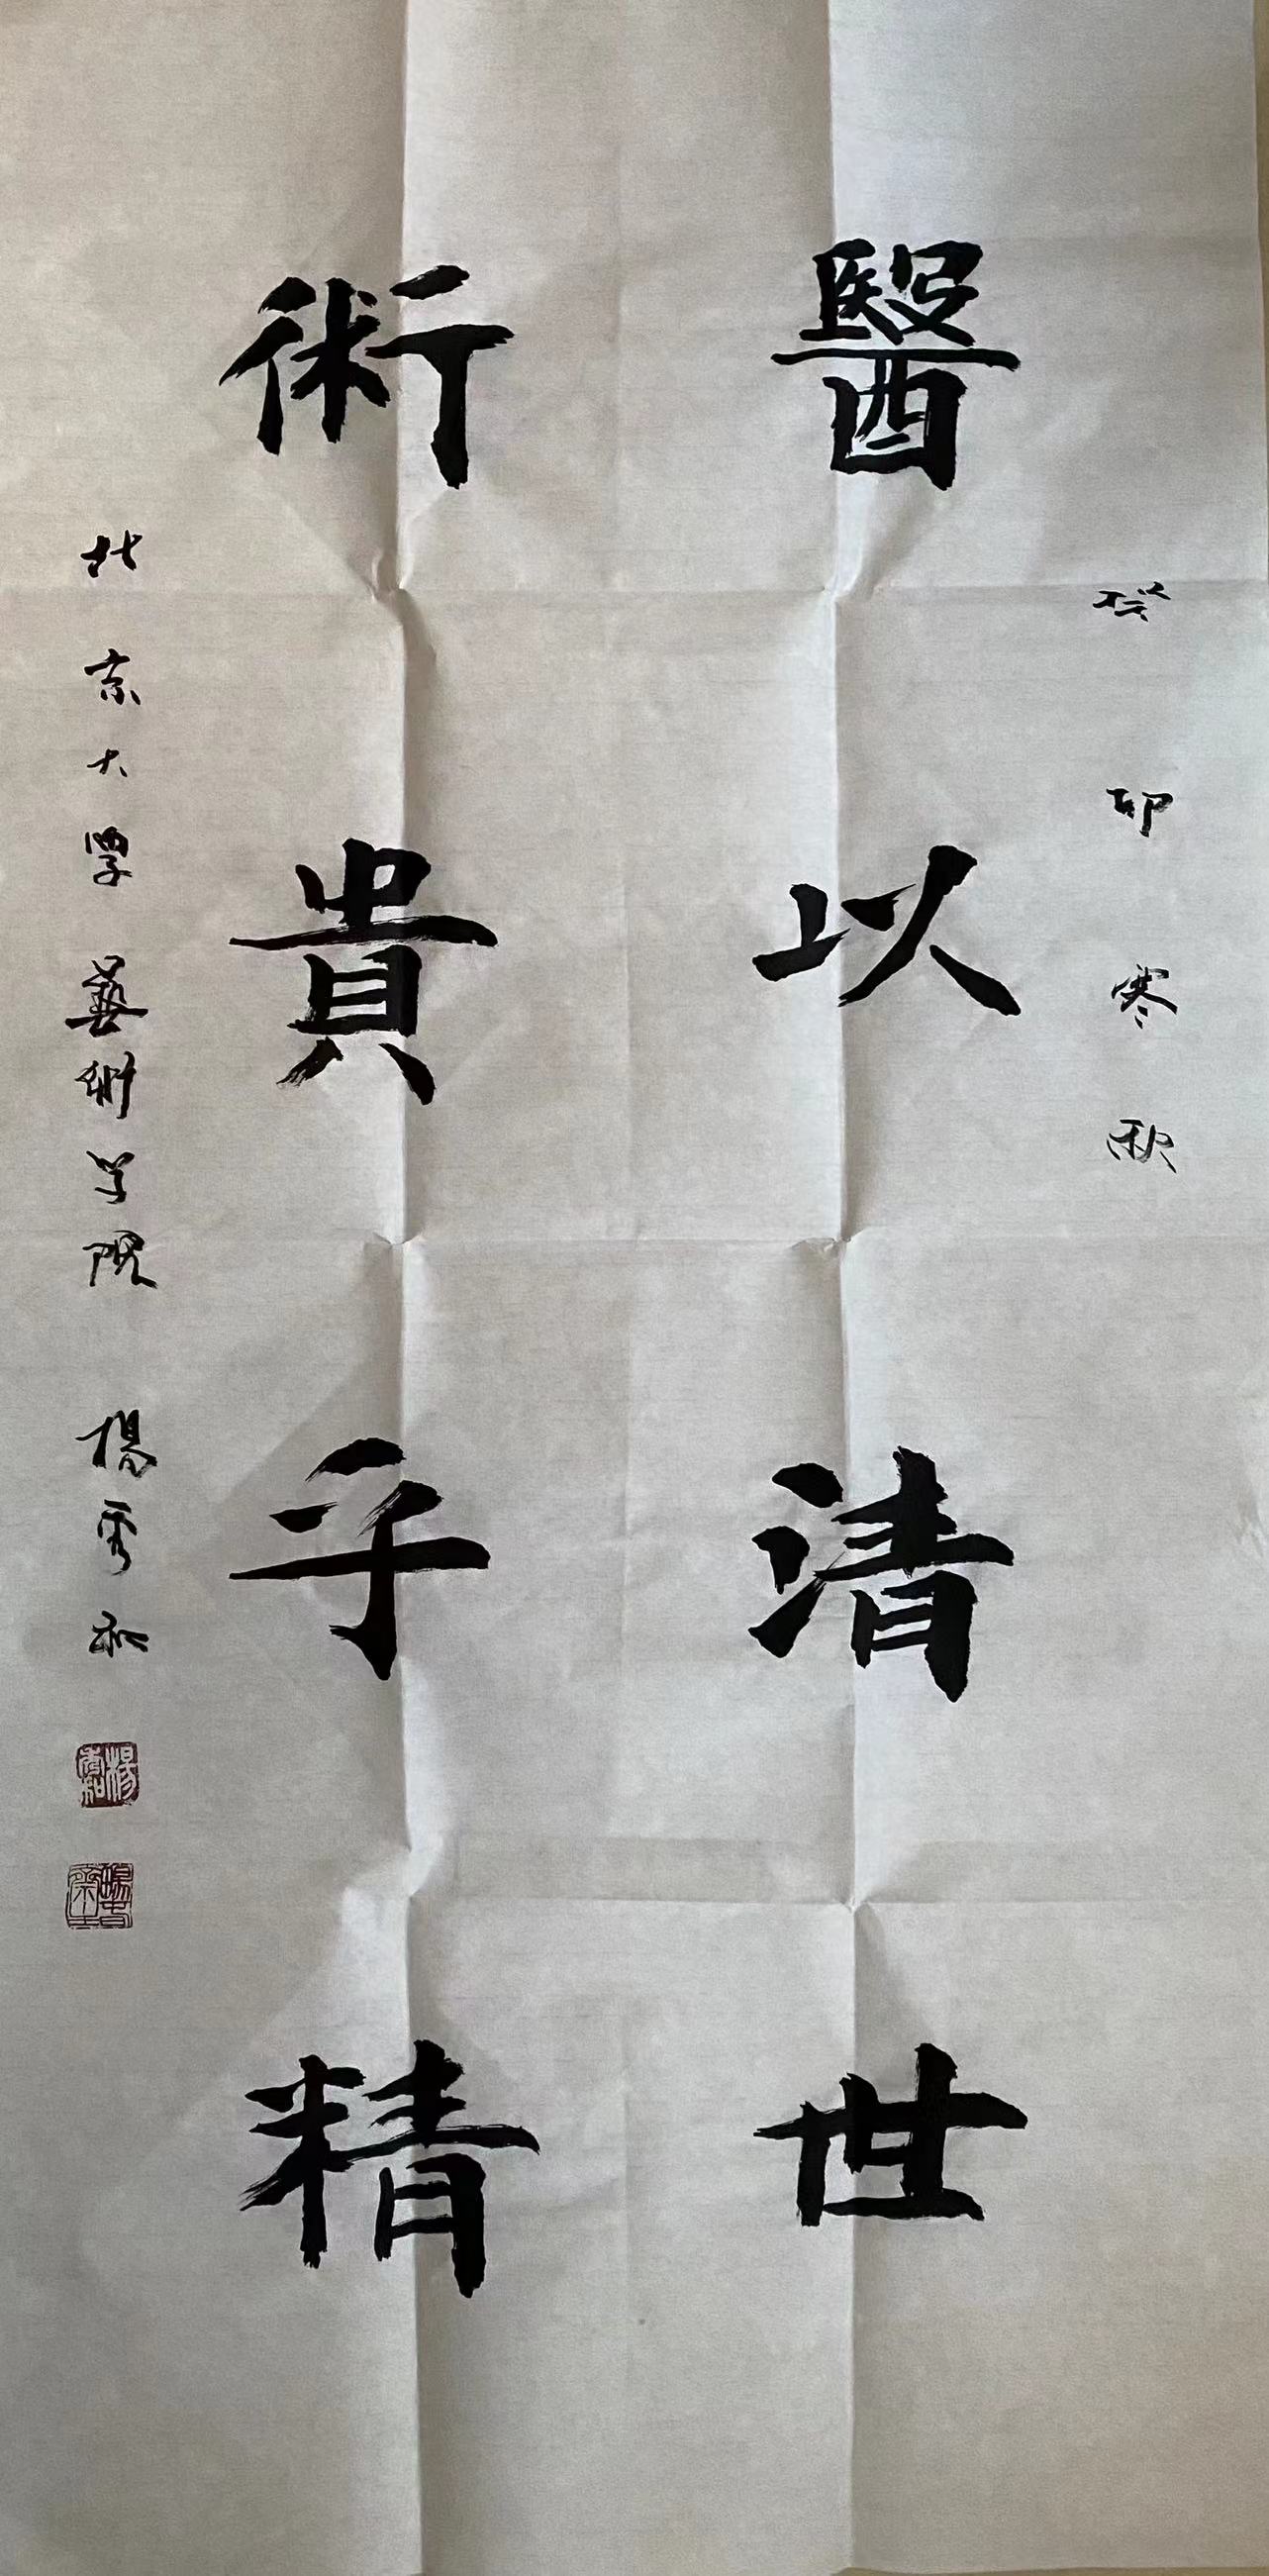 癸卯寒秋
醫以清世
術貴乎精
北京大學藝術学院楊秀和
楊秀和